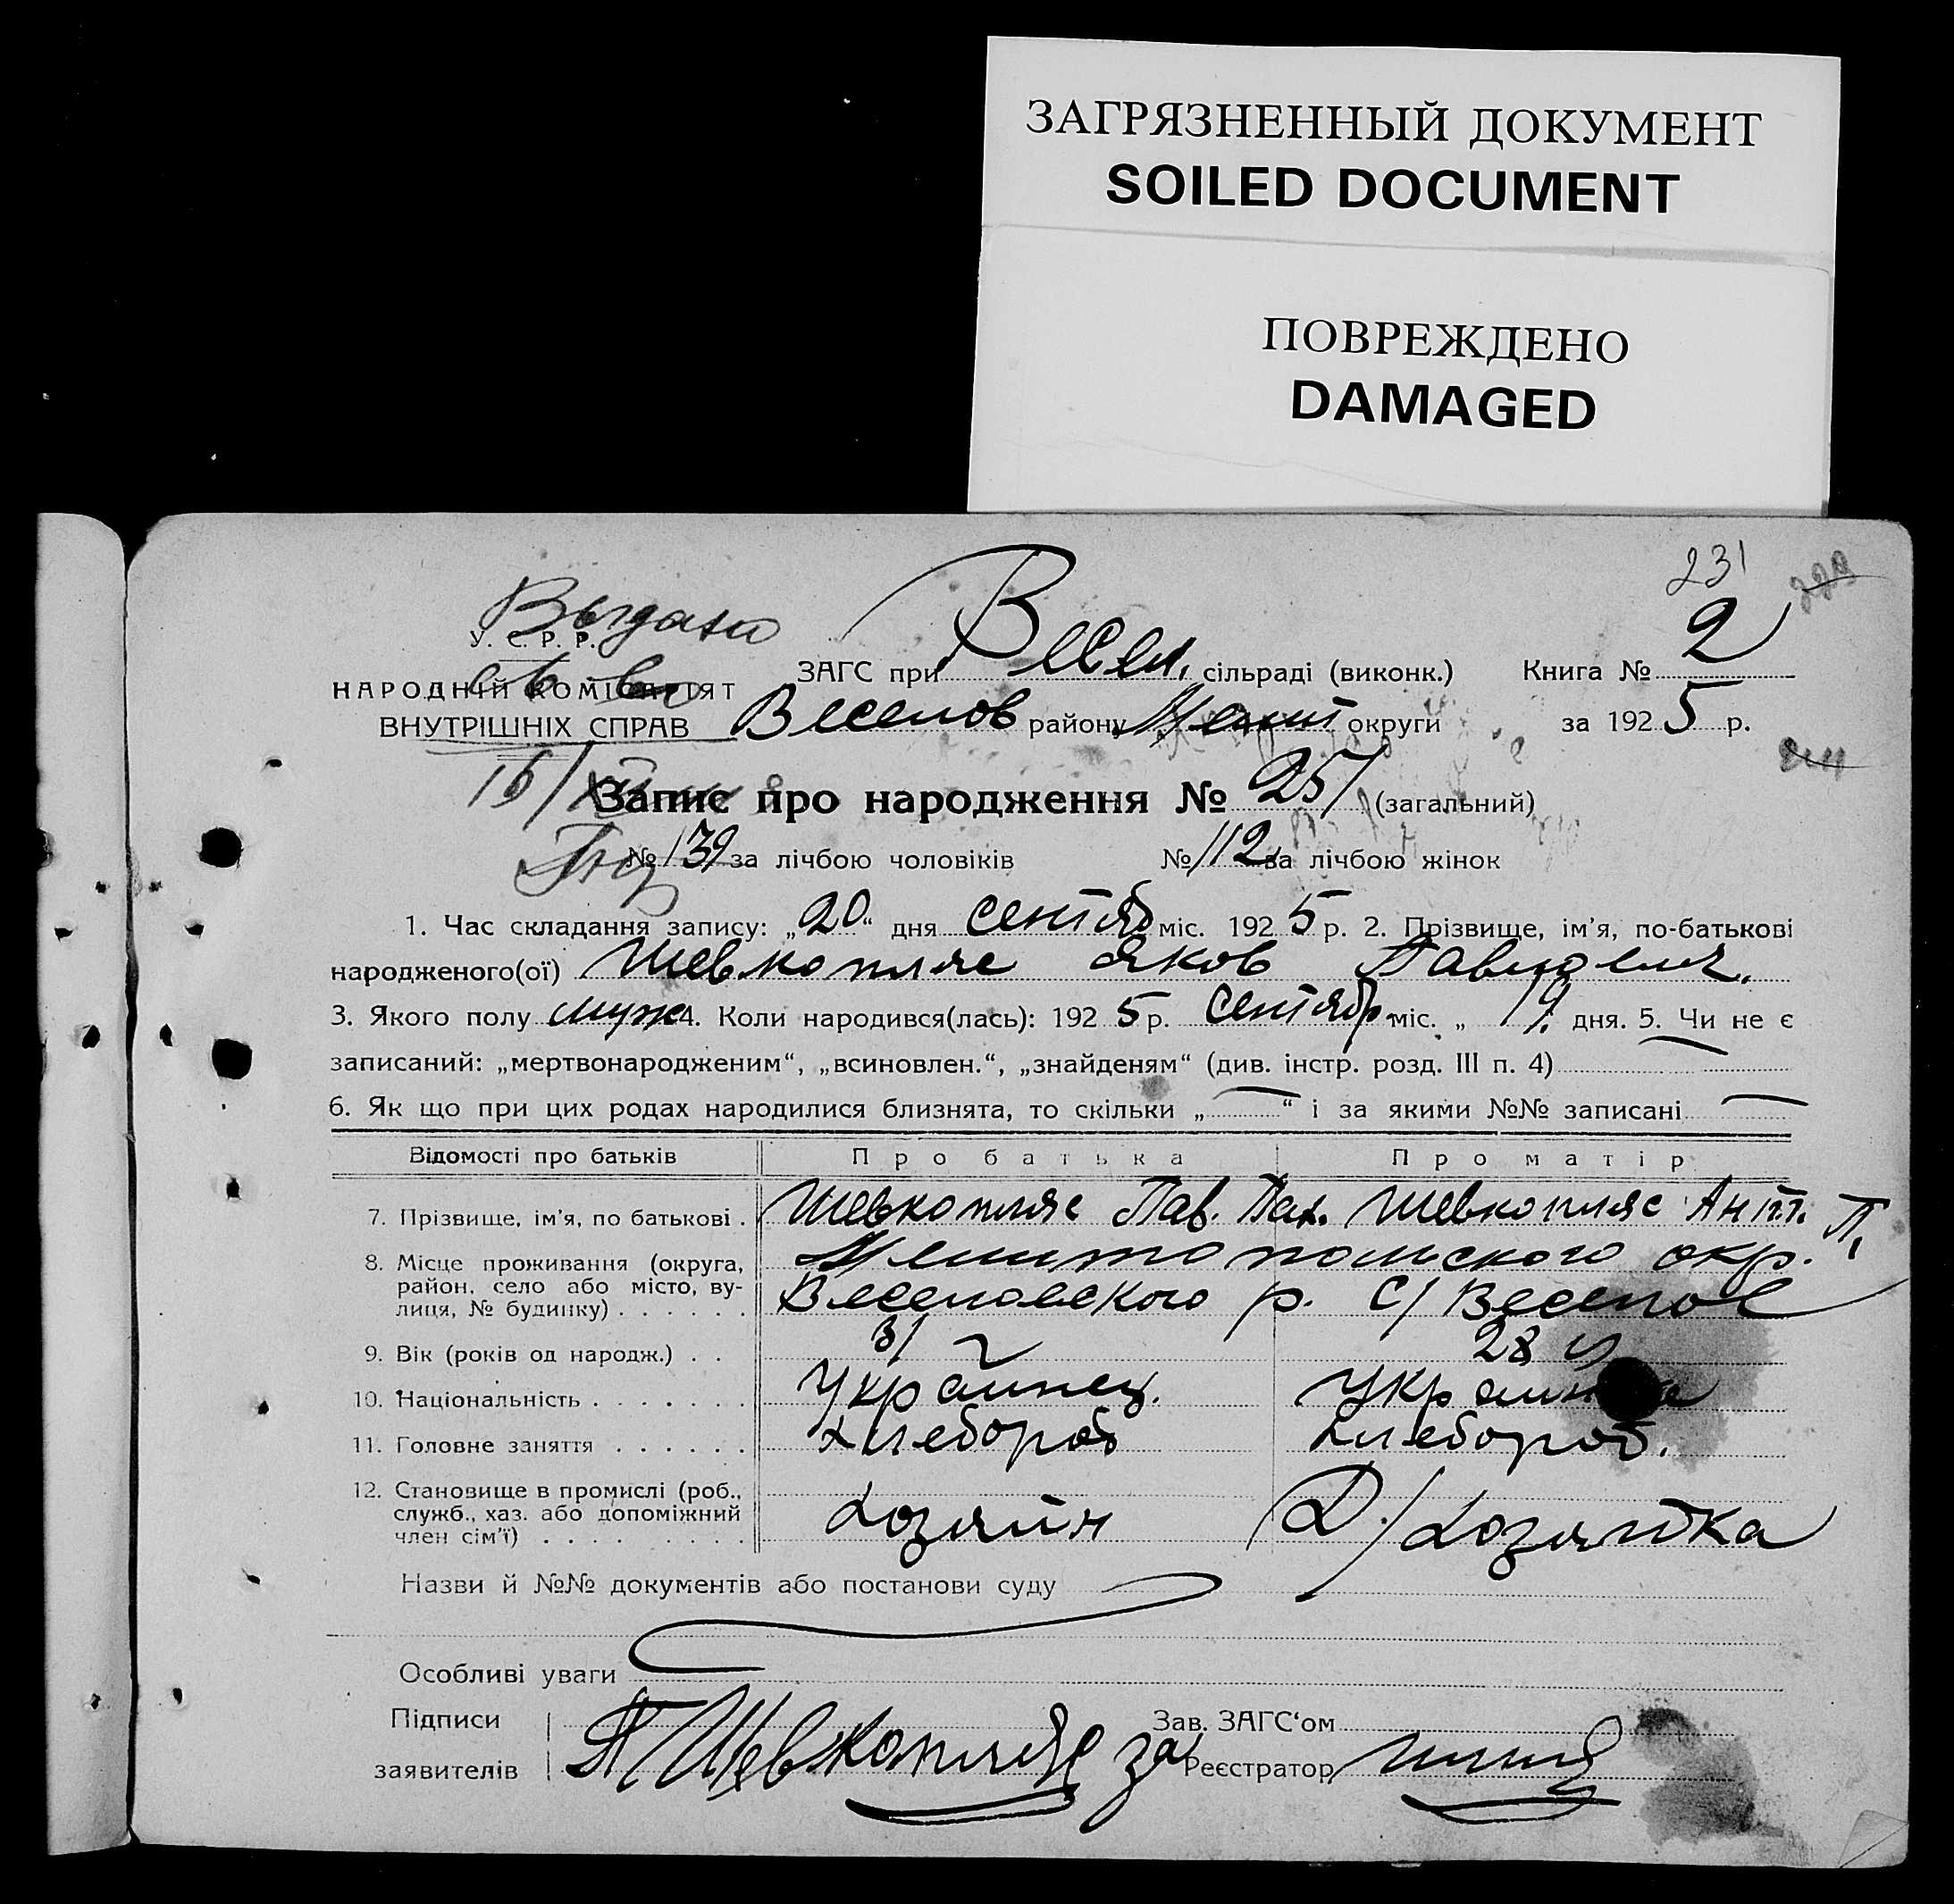 ЗАГРЯЗНЕННЫЙ ДОКУМЕНТ
SOILED DOCUMENT
ПОВРЕЖДЕНО
DAMAGED
231
Выдана
У. С. Р. Р.
НАРОДНІЙ КОМІСАРІЯТ
ВНУТРІШНІХ СПРАВ
ЗАГС при Весел. сільраді (виконк.) Книга № 2
Веселов району Мелит округи за 1925 р.
Запис про народження № 251 (загальний)
№ 139 за лічбою чоловіків № 112 за лічбою жінок
1. Час складання запису: „20“ дня сентяб міс. 1925 р. 2. Прізвище, ім'я, по-батькові
народженого(ої) Шевкопляс Яков Павлович.
3. Якого полу муж 4. Коли народився(лась): 1925 р. Сентябр. міс. „ 19. дня. 5. Чи не є
записаний: „мертвонародженим“, „всиновлен.“, „знайденям“ (див. інстр. розд. III п. 4)
6. Як що при цих родах народилися близнята, то скільки „ — “ і за якими №№ записані —
Відомості про батьків Про батька Про матір
7. Прізвище, ім'я, по батькові . Шевкопляс Пав. Пах. Шевкопляс Ант. П.
8. Місце проживання (округа, Мелитопольского окр.
район, село або місто, ву- Веселовского р. С/ Веселое
лиця, № будинку) . . . . . .
9. Вік (років од народж.) . . 31 28
10. Національність . . . . . . . Украинец. Украинка
11. Головне заняття . . . . . . хлебороб хлебороб.
12. Становище в промислі (роб.,
служб., хаз. або допоміжний хозяин Д./хозяйка
член сім'ї) . . . . . . . . .
Назви й №№ документів або постанови суду
Особливі уваги
Підписи Зав. ЗАГС‘ом
заявителів П Шевкопляс за Реєстратор